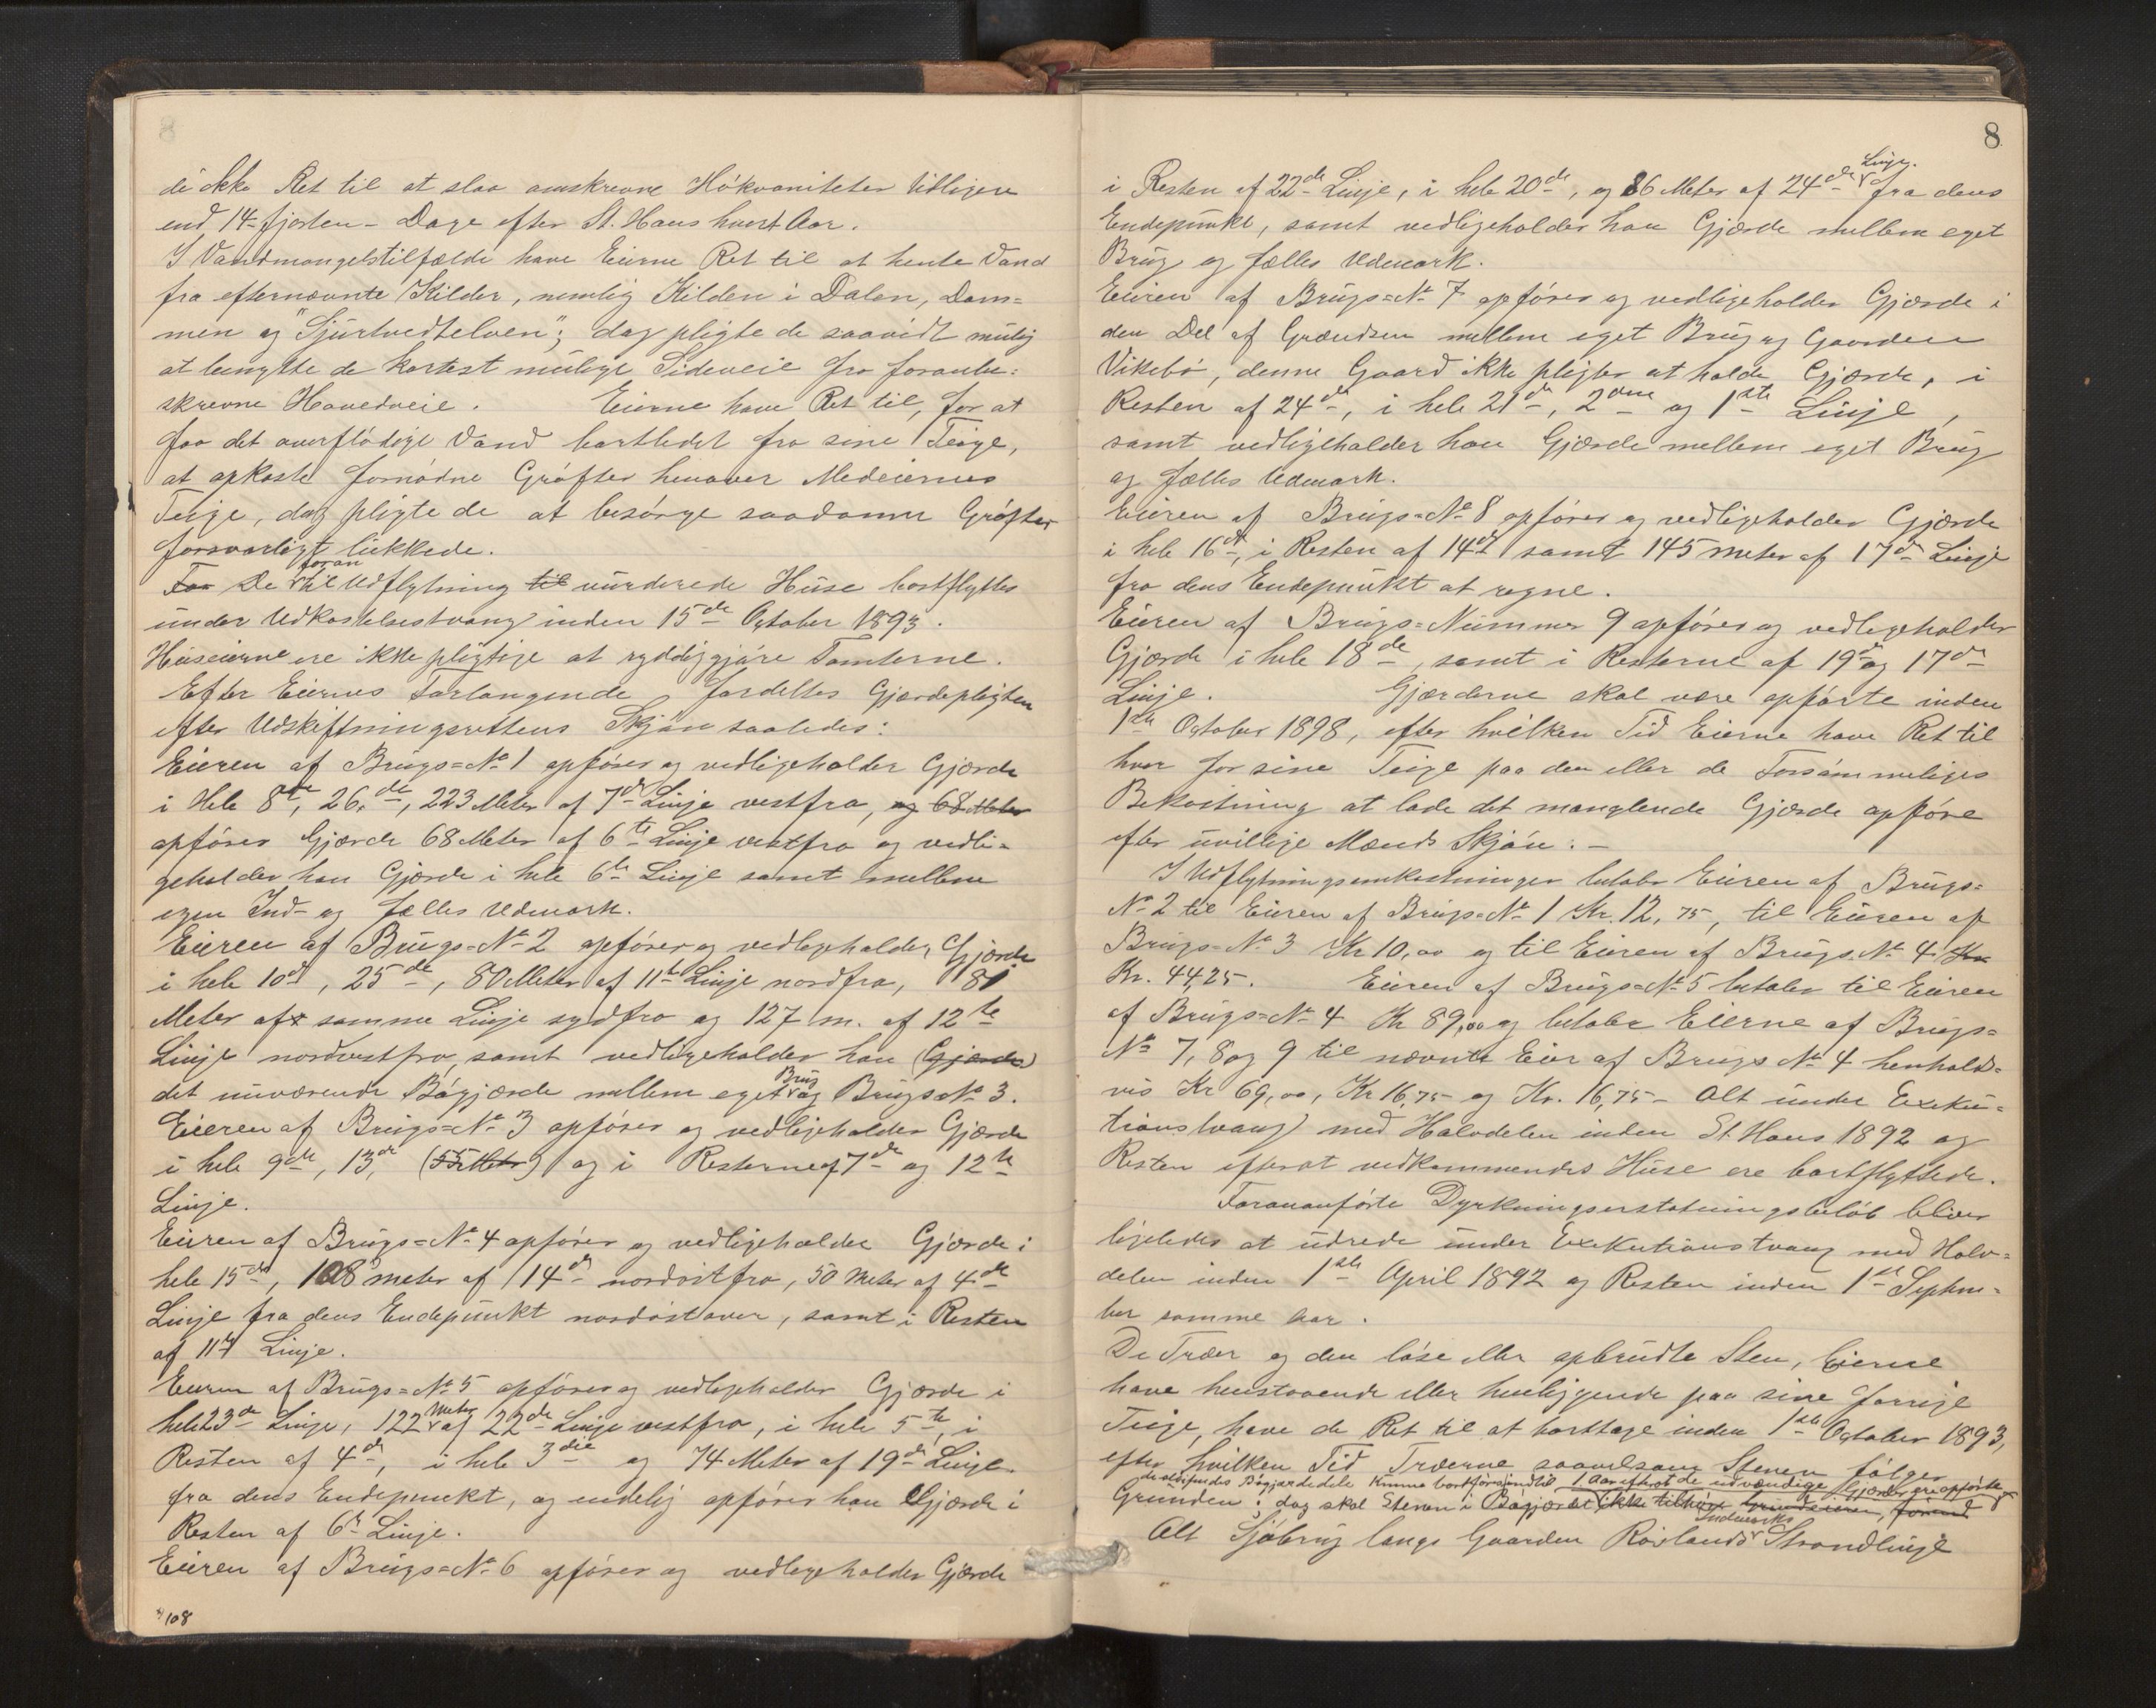 de ikke Ret til at slaa omskrevne Hökvaniteter tidligere
end 14-fjorten- Dage efter St. Hans hvert Aar.
I Vandmangelstilfælde have Eierne Ret til at hente Vand
fra efternævnte Kilder, nemlig Kilden i Dalen, Dam=
men og "Sjurtvedtelven"; dog pligte de saavidt mulig
at benytte de kortest mulige Sideveie fra foranbe=
skrevne Hovedveie. Eierne have Ret til, for at
faa det overflödige Vand bortledet fra sine Teige,
at opkaste fornödne Gröfter henover Medeiernes
Teige, dog pligte de at besörge saadanne Gröfter
forsvarligt lukkede.
For De foran til Udflytning til vurderede Huse bortflyttes
under Udkastelsestvang inden 15de October 1893.
Huseierne ere ikke pligtige at ryddiggjöre Tomterne.
Efter Eiernes Forlangende fordeltes Gjerdepligten
efter Udskiftningsrettens Skjön saaledes:
Eieren af Brugs=No 1 opförer og vedligeholder Gjærde
i Hele 8de, 26.de, 223 Meter af 7de Linje vestfra, og 68 Meter
opförer Gjærde 68 Meter af 6te Linje vestfra og vedli=
geholder han Gjærde i hele 6te Linje samt mellem
egen Ind- og fælles Udmark.
Eieren af Brugs=No 2 opförer og vedligeholder Gjærde
i hele 10de, 25de, 80 Meter af 11te Linje nordfra, 81
Meter af samme Linje sydfra og 127 m. af 12te
Linje nordvestfra, samt vedligeholder han (Gjærde)
det nuværende Bögjærde mellem eget Brug og Brugs No 3.
Eieren af Brugs=No 3 opförer og vedligeholder Gjærde
i hele 9de, 13de, (55 Meter) og i Resterne af 7de og 12te
Linje.
Eieren af Brugs=No 4 opförer og vedligeholder Gjærde i
hele 15de, 108 meter af 14de nordostfra, 50 Meter af 4de
Linje fra dens Endepunkt nordöstover, samt i Resten
af 11te Linje.
Eieren af Brugs=No 5 opförer og vedligeholder Gjærde i
hele 23de Linje, 122 Meter af 22de Linje vestfra, i hele 5te, i
Resten af 4de, i hele 3die og 74 Meter af 19de Linje
fra dens Endepunkt, og endelig opförer han Gjærde i
Resten af 6te Linje.
Eieren af Brugs=No 6 opförer og vedligeholder Gjærde
108
8
i Resten af 22de Linje, i hele 20de, og 86 Meter af 24de Linje. fra dens
Endepunkt, samt vedligeholder han Gjærde mellem eget
Brug og fælles Udmark.
Eieren af Brugs=No 7 opförer og vedligeholder Gjærde i
den Del af Grændsen mellem eget Brug og Gaarden
Vikebö, denne Gaard ikke pligter at holde Gjærde, i
Resten af 24de, i hele 21de, 2den og 1ste Linje,
samt vedligeholder han Gjærde mellem eget Brug
og fælles Udmark.
Eieren af Brugs=No 8 opförer og vedligeholder Gjærde
i hele 16de, i Resten af 14de samt 145 meter af 17de Linje
fra dens Endepunkt at regne.
Eieren af Brugs=Nummer 9 opförer og vedligeholder
Gjærde i hele 18de, samt i Resterne af 19de og 17de
Linje. Gjærderne skal være opförte inden
1ste October 1898, efter hvilken Tid Eierne have Ret til
hver for sine Teige paa den eller de Forsömmeliges
Bekostning at lade det manglende Gjærde opföre
efter uvillige Mænds Skjön: -
I Udflytningsomkostninger betaler Eieren af Brugs=
No 2 til Eieren af Brugs=No 1 Kr. 12,75, til Eieren af
Brugs=No 3 Kr 10,00 og til Eieren af Brugs=No 4 Kr
Kr. 44,25. Eieren af Brugs=No 5 betaler til Eieren
af Brugs=No 4 Kr 89,00 og betaler Eierne af Brugs=
No 7, 8 og 9 til nævnte Eier af Brugs No 4 henholds=
vis Kr 69,00, Kr 16,75 og Kr. 16,75 - Alt under Exeku=
tionstvang med Halvdelen inden St. Hans 1892 og
Resten efterat vedkommendes Huse ere bortflyttede.
Forananförte Dyrkningserstatningsbelöb bliver
ligeledes at udrede under Exekutionstvang med Halv=
delen inden 1ste April 1892 og Resten inden 1ste Septem=
ber samme Aar.
De Træer og den löse eller opbrudte Sten, Eierne
have henstaaende eller henliggende paa sine forrige
Teige, have de Ret til at borttage inden 1ste October 1893,
efter hvilken Tid Træerne saavelsom Stenen fölger
Bögjærdedele kunne bortföres indtil 1 Aar efterat de udvændige Gjærder ere opförte
Grunden; dog skal Stenen i Bögjærdet ikke tilhöre Grundeieren, forend
Alt Sjöbrug langs Gaarden Rövlands Indmarks Strandlinje